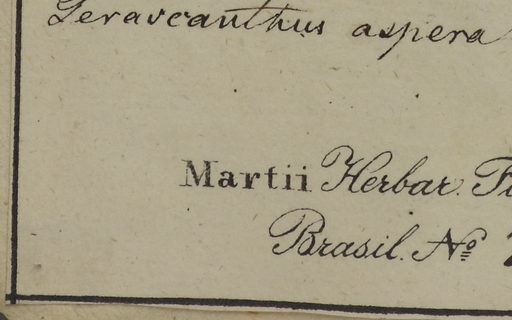 Geravcanthus aspera
Martii Herbar. Fl
Brasil. No